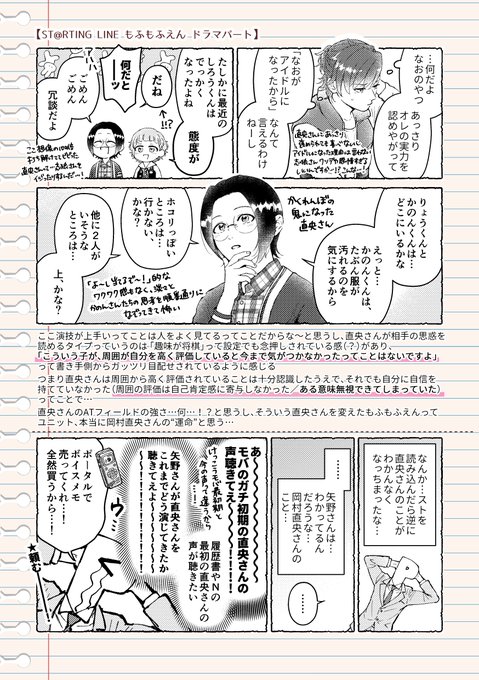 【ST@RTING LINE もふもふえん ドラマパート】
…何だよ
なおのやつ
あっさり
オレの実力を
認めやがって
「なおが
アイドルに
なったから」
なんて
言えるわけ
ねーし
だね
何だと
ーッ
たしかに最近の
しろうくんは
でっかく
なったよね
態度が
!!?
ごめん
ごめん
冗談だよ
かくれんぼの
鬼になった
直央さん
りょうくんと
かのんくんは…
どこにいるかな
えっと…
かのんくんは、
たぶん服が
汚れるのを
気にするから
ホコリっぽい
ところは…
行かない、
かな?
他に2人が
いそうな
ところは…
上、かな?
ここ演技が上手いってことは人をよく見てるってことだからな～と思うし、直央さんが相手の思惑を
読めるタイプっていうのは「趣味が将棋」って設定でも念押しされている感(?)があり、
「こういう子が、周囲が自分を高く評価していると今まで気がつかなかったってことはないですよ」
って書き手側からガッツリ目配せされているように感じる
つまり直央さんは周囲から高く評価されていることは十分認識したうえで、それでも自分に自信を
持てていなかった(周囲の評価は自己肯定感に寄与しなかった/ある意味無視できてしまっていた)
ってことで…
直央さんのATフィールドの強さ…何…!?と思うし、そういう直央さんを変えたもふもふえんって
ユニット、本当に岡村直央さんの"運命"と思う…
なんか…ストを
読み込んだら逆に
直央さんのことが
わかんなく
なっちまったな…
………
矢野さんは…
わかってるん
だろうな…
岡村直央さんの
こと…
…
あ～～～～
モバのガチ初期の直央さんの
声聴きてえ～～～!!!!
けっこうモバ最初期と
今の声って違うから
矢野さんが直央さんを
これまでどう演じてきたか
聴きてえよ～～～!!
履歴書やNの
最初の直央さんの
声が聴きたい
ポータルで
ボイスメモ
売ってくれ…!
全然買うから…!
★頼む